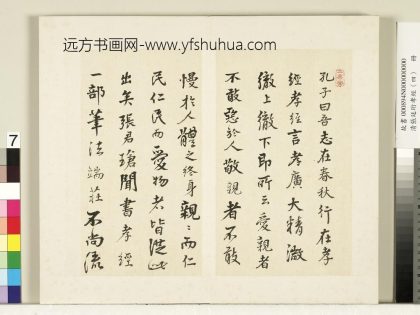 远方书画网-www.yfshuhua.com
孔子曰吾志在春秋行在孝
經孝經言孝廣大精微
徹上徹下即所云愛親者
不敢惡於人敬親者不敢
慢於人體之終身親親而仁
民仁民而愛物者皆從此
出矣張君瑲聞書孝經
一部筆法端莊不尚流
7